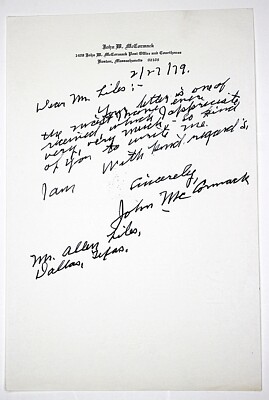 John W. McCormack
1405 John W. McCormack Post Office and Courthouse
Boston, Massachusetts 02109
2/27/79.
Dear Mr. Liles:-
Your letter is one of
the nicest I have ever
received which I appreciate
very, very much. So kind
of you to write me.
With kind regards,
I am
Sincerely,
John McCormack
Mr. Allen Liles,
Dallas, Texas.